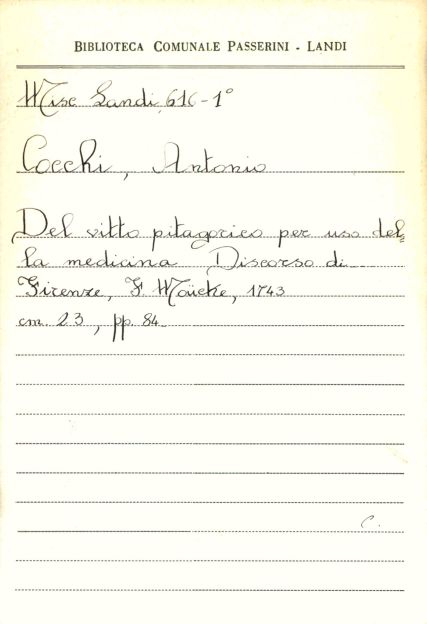 BIBLIOTECA COMUNALE PASSERINI - LANDI
Misc Landi 616-1°
Cocchi, Antonio
Del vitto pitagorico per uso del=
la medicina Discorso di
Firenze, F. Moücke, 1743
cm. 23, pp. 84
C.